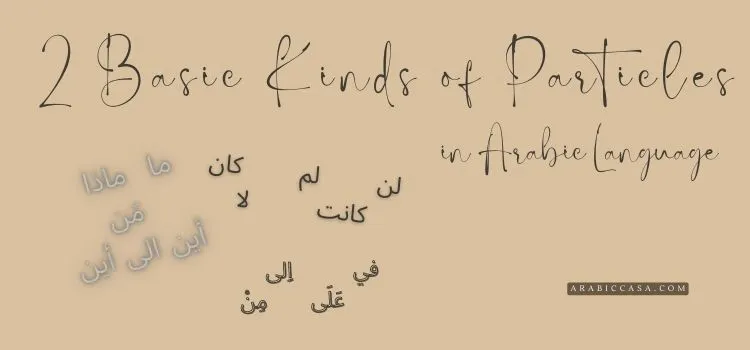 2 Basic Kinds of Particles
in Arabic Language
ما ماذا
مَن
أين الى أين
كان
لا
لم
لن
كانت
في
إلى
عَلَى
مِنْ
ARABICCASA.COM